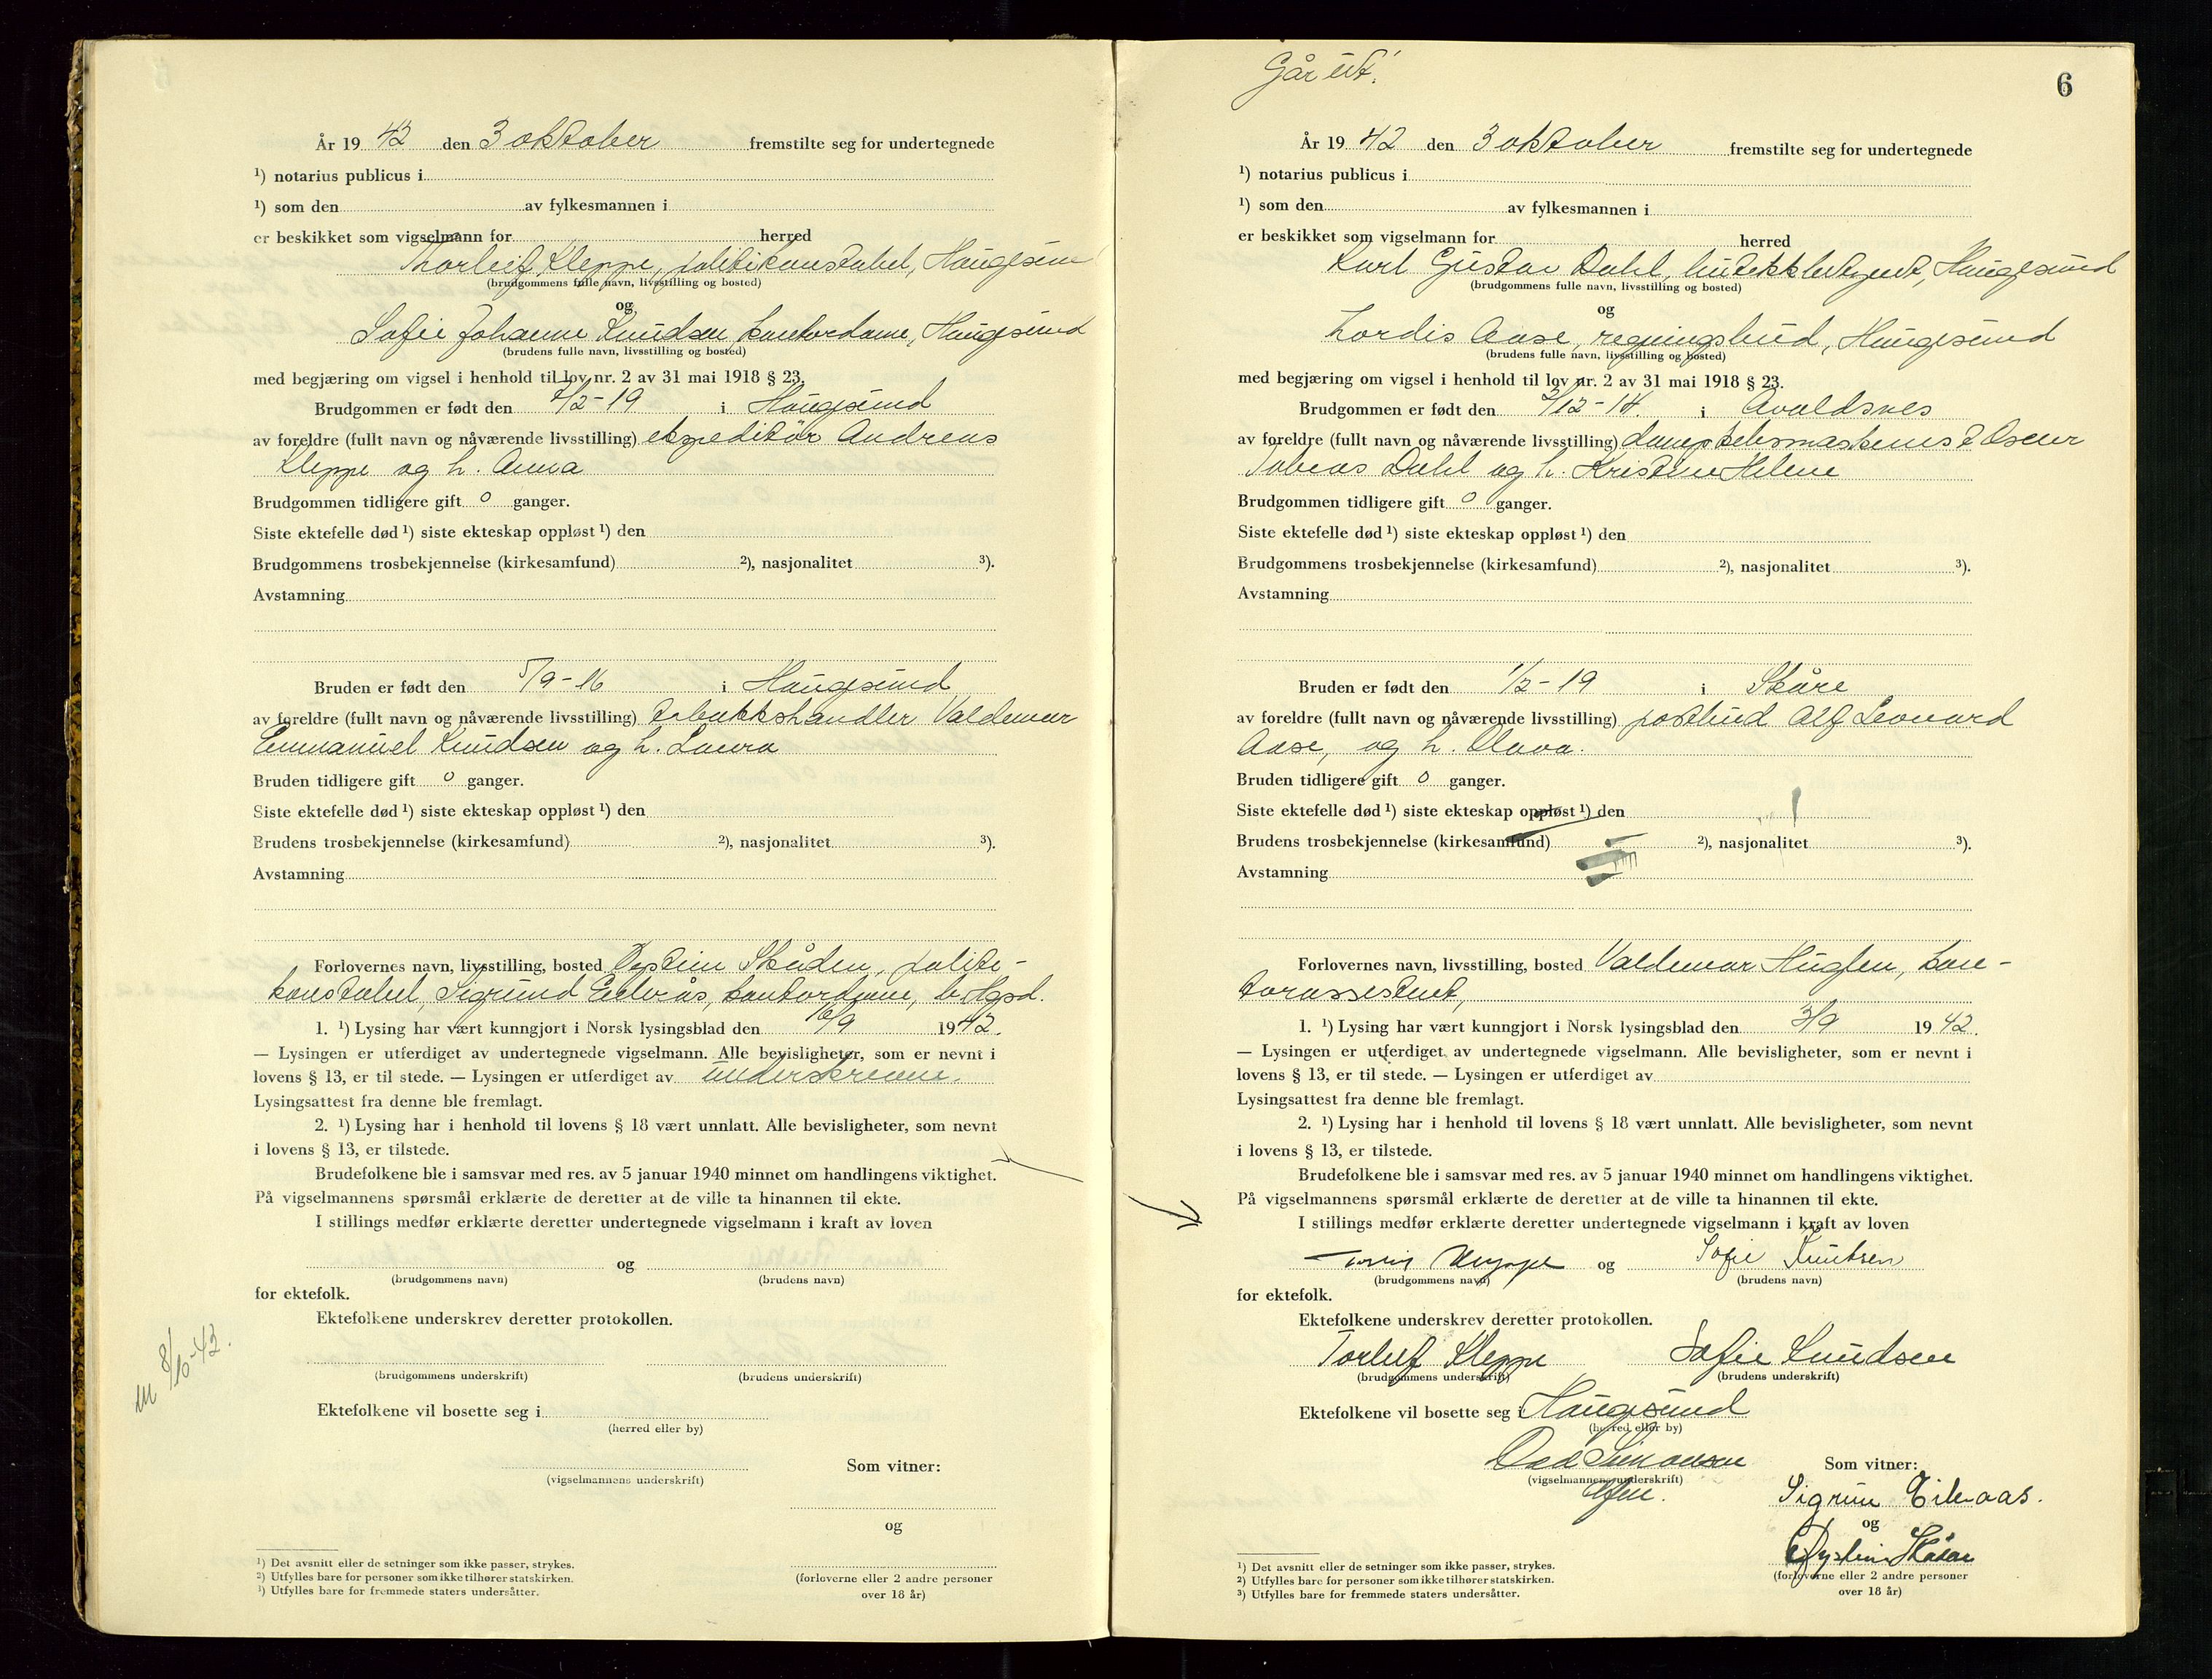 År 19 42 den 3 oktober fremstilte seg for undertegnede
¹) notarius publicus i
¹) som den av fylkesmannen i
er beskikket som vigselmann for herred
Thorleif Kleppe, politikonstabel, Haugesun
(brudgommens fulle navn, livsstilling og bosted)
og
Sofie Johanne Knudsen kontordame, Haugesund
(brudens fulle navn, livsstilling og bosted)
med begjæring om vigsel i henhold til lov nr. 2 av 31 mai 1918 § 23.
Brudgommen er født den /2-19 i Haugesund
av foreldre (fullt navn og nåværende livsstilling) ekspeditør Andreas
Kleppe og h. Anna
Brudgommen tidligere gift 0 ganger.
Siste ektefelle død ¹) siste ekteskap oppløst ¹) den
Brudgommens trosbekjennelse (kirkesamfund) ²), nasjonalitet ³).
Avstamning
Bruden er født den 5/9-16 i Haugesund
av foreldre (fullt navn og nåværende livsstilling) tobakkshandler Valdemar
Emmanuel Knudsen og h. Laura
Bruden tidligere gift 0 ganger.
Siste ektefelle død ¹) siste ekteskap oppløst ¹) den
Brudens trosbekjennelse (kirkesamfund) ²), nasjonalitet ³).
Avstamning
Forlovernes navn, livsstilling, bosted Øystein Skåden, politi-
konstabel, Sigrund Eikrås, kontordame, b. Hgsd.
1. ¹) Lysing har vært kunngjort i Norsk lysingsblad den /9 1942.
— Lysingen er utferdiget av undertegnede vigselmann. Alle bevisligheter, som er nevnt i
lovens § 13, er til stede. — Lysingen er utferdiget av underskrevne.
Lysingsattest fra denne ble fremlagt.
2. ¹) Lysing har i henhold til lovens § 18 vært unnlatt. Alle bevisligheter, som nevnt
i lovens § 13, er tilstede.
Brudefolkene ble i samsvar med res. av 5 januar 1940 minnet om handlingens viktighet.
På vigselmannens spørsmål erklærte de deretter at de ville ta hinannen til ekte.
I stillings medfør erklærte deretter undertegnede vigselmann i kraft av loven
og
(brudgommens navn) (brudens navn)
for ektefolk.
Ektefolkene underskrev deretter protokollen.
(brudgommens underskrift) (brudens underskrift)
m 8/10-42.
Ektefolkene vil bosette seg i
(herred eller by)
(vigselmannens underskrift)
Som vitner:
og
(forloverne eller 2 andre personer
over 18 år)
¹) Det avsnitt eller de setninger som ikke passer, strykes.
²) Utfylles bare for personer som ikke tilhører statskirken.
³) Utfylles bare for fremmede staters undersåtter.
Går ut!
6
År 19 42 den 3 oktober fremstilte seg for undertegnede
¹) notarius publicus i
¹) som den av fylkesmannen i
er beskikket som vigselmann for herred
Karl Gustav Dahl, Haugesund
(brudgommens fulle navn, livsstilling og bosted)
og
Tordis Aase, regningsbud, Haugesund
(brudens fulle navn, livsstilling og bosted)
med begjæring om vigsel i henhold til lov nr. 2 av 31 mai 1918 § 23.
Brudgommen er født den /12-14. i Avaldsnes
av foreldre (fullt navn og nåværende livsstilling) dampskibsmaskinist Oscar
Tobias Dahl og h. Kristine Helene
Brudgommen tidligere gift 0 ganger.
Siste ektefelle død ¹) siste ekteskap oppløst ¹) den
Brudgommens trosbekjennelse (kirkesamfund) ²), nasjonalitet ³).
Avstamning
Bruden er født den 1/2-19 i Skåre
av foreldre (fullt navn og nåværende livsstilling) postbud Alf Leonard
Aase, og h. Olava.
Bruden tidligere gift 0 ganger.
Siste ektefelle død ¹) siste ekteskap oppløst ¹) den
Brudens trosbekjennelse (kirkesamfund) ²), nasjonalitet ³).
Avstamning
Forlovernes navn, livsstilling, bosted Valdemar Huglen, kon-
torassistent,
1. ¹) Lysing har vært kunngjort i Norsk lysingsblad den 3/9 19 42.
— Lysingen er utferdiget av undertegnede vigselmann. Alle bevisligheter, som er nevnt i
lovens § 13, er til stede. — Lysingen er utferdiget av
Lysingsattest fra denne ble fremlagt.
2. ¹) Lysing har i henhold til lovens § 18 vært unnlatt. Alle bevisligheter, som nevnt
i lovens § 13, er tilstede.
Brudefolkene ble i samsvar med res. av 5 januar 1940 minnet om handlingens viktighet.
På vigselmannens spørsmål erklærte de deretter at de ville ta hinannen til ekte.
I stillings medfør erklærte deretter undertegnede vigselmann i kraft av loven
Kleppe og Sofie Knutsen
(brudgommens navn) (brudens navn)
for ektefolk.
Ektefolkene underskrev deretter protokollen.
Torleif Kleppe Sofie Knudsen
(brudgommens underskrift) (brudens underskrift)
Ektefolkene vil bosette seg i Haugesund
(herred eller by)
Odd Simonsen
(vigselmannens underskrift)
Som vitner:
Sigrun Eikraas.
og
Øystein Skåden
(forloverne eller 2 andre personer
over 18 år)
¹) Det avsnitt eller de setninger som ikke passer, strykes.
²) Utfylles bare for personer som ikke tilhører statskirken.
³) Utfylles bare for fremmede staters undersåtter.